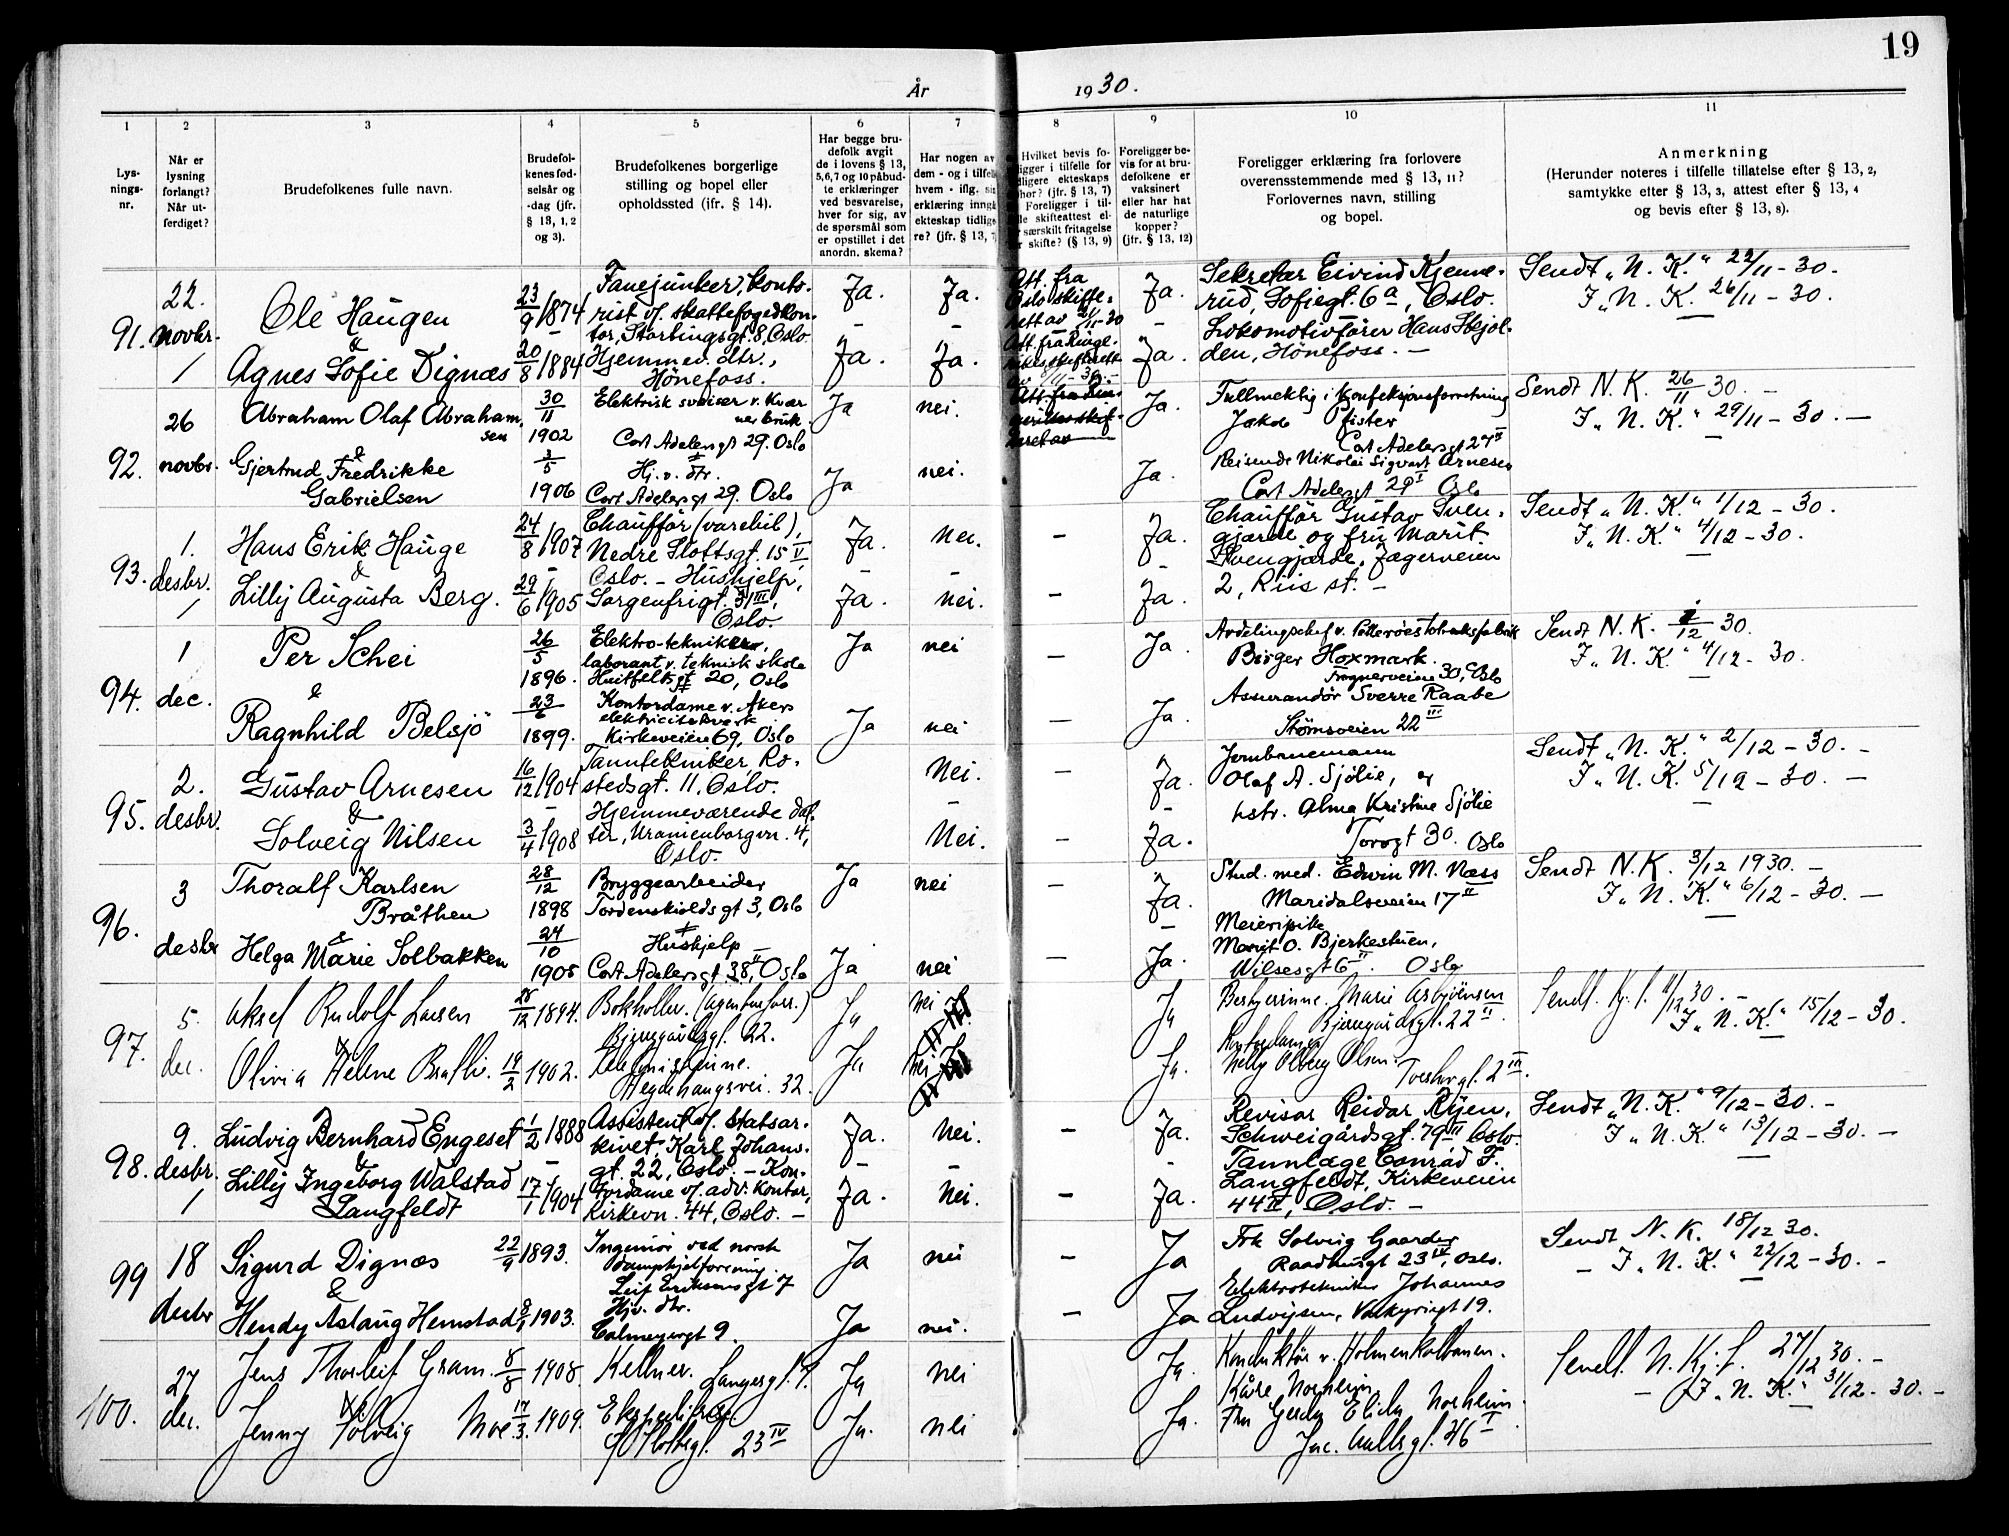 19
År 1930.
1
Lys-
nings-
nr.
2
Når er
lysning
forlangt?
Når ut-
ferdiget?
3
Brudefolkenes fulle navn.
4
Brudefol-
kenes fød-
selsår og
-dag (jfr.
§ 13, 1, 2
og 3).
5
Brudefolkenes borgerlige
stilling og bopel eller
opholdssted (jfr. § 14).
6
Har begge bru-
defolk avgit
de i lovens § 13,
5,6,7 og 10 påbud-
te erklæringer
ved besvarelse,
hver for sig, av
de spørsmål som
er opstillet i det
anordn. skema?
7
Har nogen av
dem - og i tilfelle
hvem - iflg. sin
erklæring inngått
ekteskap tidlige-
re? (jfr. § 13, 7)
8
Hvilket bevis fo-
ligger i tilfelle for
tidligere ekteskaps
ophør? (jfr. § 13, 7)
Foreligger i til-
felle skifteattest el-
særskilt fritagelse
skifte? (§ 13, 9)
9
Foreligger be-
vis for at bru-
defolkene er
vaksinert
eller har hat
de naturlige
kopper?
(jfr. § 13, 12)
10
Foreligger erklæring fra forlovere
overensstemmende med § 13, 11?
Forlovernes navn, stilling
og bopel.
11
Anmerkning
(Herunder noteres i tilfelle tillatelse efter § 13, 2,
samtykke efter § 13, 3, attest efter § 13, 4
og bevis efter § 13, 8).
91.
22.
novbr.
Ole Haugen
&
Agnes Sofie Dignæs
23/9 1874
20/8 1884
Fanejunker, konto-
rist v/ skattefogedkon-
tor, Stortingsgt. 8, Oslo.
Hjemmev. dtr.,
Hönefoss.
Ja.
Ja.
Ja.
Ja.
Att. fra
Oslo skifte-
rett av 21/11-30
Att. fra Ringe-
rikes skifterett
av 8/11-30.
Ja.
Ja.
Sekretær Eivind Kjenne-
rud, Sofiegt. 6a, Oslo.
Lokomotivförer Hans Skjol-
den, Hönefoss. -
Sendt "N. K." 22/11-30.
I "N. K." 26/11-30.
92.
26
novbr.
Abraham Olaf Abraham-
sen
&
Gjertrud Fredrikke
Gabrielsen
30/11
1902
3/5
1906
Elektrisk sveiser v. Kvær
ner bruk
Cort Adelersgt 29. Oslo
Hj. v. dtr.
Cort Adelersgt 29. Oslo
Ja
Ja
nei.
nei.
Ja.
Ja.
Fullmektig i konfeksjonsforretning
Jakob Pfister
Cort Adelersgt 27 II
Reisende Nikolai Sigvart Arnesen
Cort Adelersgt 29 I Oslo
Sendt N. K. 26/11 30. -
I "N. K." 29/11-30. -
93.
1.
desbr.
Hans Erik Hauge
&
Lilly Augusta Berg.
24/8 1907
29/6 1905
Chaufför (varebil),
Nedre Slottsgt. 15 V
Oslo. - Hushjelp,
Sorgenfrigt. 31 III,
Oslo.
Ja.
Ja.
Nei.
nei.
-
-
Ja.
Ja.
Chaufför Gustav Sven-
gjærde og fru Marit
Svengjærde, Jægerveien
2, Riis st. -
Sendt "N. K." 1/12-30.
I "N. K." 4/12-30.
94.
1
dec.
Per Schei
&
Ragnhild Belsjö
26/5
1896.
23/6
1899.
Elektro-tekniker,
laborant v. teknisk skole
Huitfeldtsgt 20, Oslo
Kontordame v. Akers
elektricitetsverk
Kirkeveien 69, Oslo
Ja
Ja
nei
nei
-
-
Ja.
Ja.
Avdelingschef v. Petterøes tobakksfabrik
Birger Hoxmark.
Frognerveien 30, Oslo
Assurandör Sverre Raabe
Strømsveien 22 III
Sendt N. K. 1/12 30.
I "N. K." 4/12-30.
95.
2.
desbr.
Gustav Arnesen
&
Solveig Nilsen
16/12 1904
3/4 1908
Tanntekniker Ro-
stedsgt. 11, Oslo.
Hjemmeværende dat-
ter, Uranienborgvn. 4,
Oslo.
Nei.
Nei.
-
-
Ja.
Ja.
Jernbanemann
Olaf A. Sjölie, og
hstr. Alma Kristine Sjölie
Torvgt 30. Oslo
Sendt "N. K." 2/12-30. -
I "N. K." 5/12-30. -
96.
3
desbr
Thoralf Karlsen
Bråthen
&
Helga Marie Solbakken
28/12
1898
24/10
1905
Bryggearbeider
Tordenskioldsgt 3, Oslo
Hushjelp
Cort Adelersgt 38, II Oslo
Ja
Ja
nei
nei
-
-
Ja.
Ja.
Stud. med. Edwin M. Næss
Maridalsveien 17 II
Meieripike
Marit O. Bjerkestuen,
Wilsesgt 6 II. Oslo
Sendt N. K. 3/12 1930. -
I "N. K." 6/12-30. -
97.
5.
dec.
Aksel Rudolf Larsen
&
Olivia Helene Bratlie.
28/12 1894.
19/2 1902.
Bokholder. (Agenturforr.)
Bjerregårdsgt. 22.
Telefonistinne.
Hegdehaugsvei. 32.
Ja
Ja
nei
nei
Ja
Ja.
Bestyrerinne. Marie Asbjörnsen
Bjerregårdsgt. 22 II.
Kontordame
Nelly Olberg Olsen.
2 III.
Sendt. Kj. f. 11/12 30. -
I "N. K." 15/12-30.
98.
9.
desbr.
Ludvig Bernhard Engeset
&
Lilly Ingeborg Walstad
Langfeldt
1/2 1888
17/1 1904
Assistent v/ Statsar-
kivet, Karl Johans-
gt. 22, Oslo. - Kon-
tordame v/ adv. kontor,
Kirkevn. 44, Oslo. -
Ja.
Ja.
Nei.
Nei.
-
-
Ja.
Ja.
Revisor Reidar Ryen,
Schweigårdsgt. 79 II Oslo.
Tannlæge Conrad F.
Langfeldt, Kirkeveien
44 IV, Oslo. -
Sendt "N. K." 9/12-30. -
I "N. K." 13/12-30. -
99
18
desbr
Sigurd Dignæs
&
Hendy Aslaug Hemstad
22/9 1893.
1903.
Ingeniör ved norsk
dampkjelforening.
Leif Eriksonsgt 7
Hjv. dtr.
Calmeyersgt 9.
Ja
Ja
nei
nei.
-
-
Ja
Ja
Frk Solveig Gaarder
Raadhusgt 23 IV, Oslo.
Elektrotekniker Johannes
Ludvigsen, Valkyriegt 19.
Sendt N. K. 18/12 30.
- I "N. K." 22/12-30. -
100.
27
dec.
Jens Thorleif Gram.
&
Jenny Solveig Moe.
8/8 1908.
17/3 1909.
Kellner. Langesgt. 19.
Ekspeditrise
Slottsgt. 23 IV
Ja
Ja.
nei
nei
Ja
Ja.
Konduktör v. Holmenkolbanen.
Kåre Norheim
Fru Gerda Elida Norheim.
Jac. Aallsgt. 46 I
Sendt. N. Kj. f. 27/12 30. -
- I "N. K." 31/12-30. -